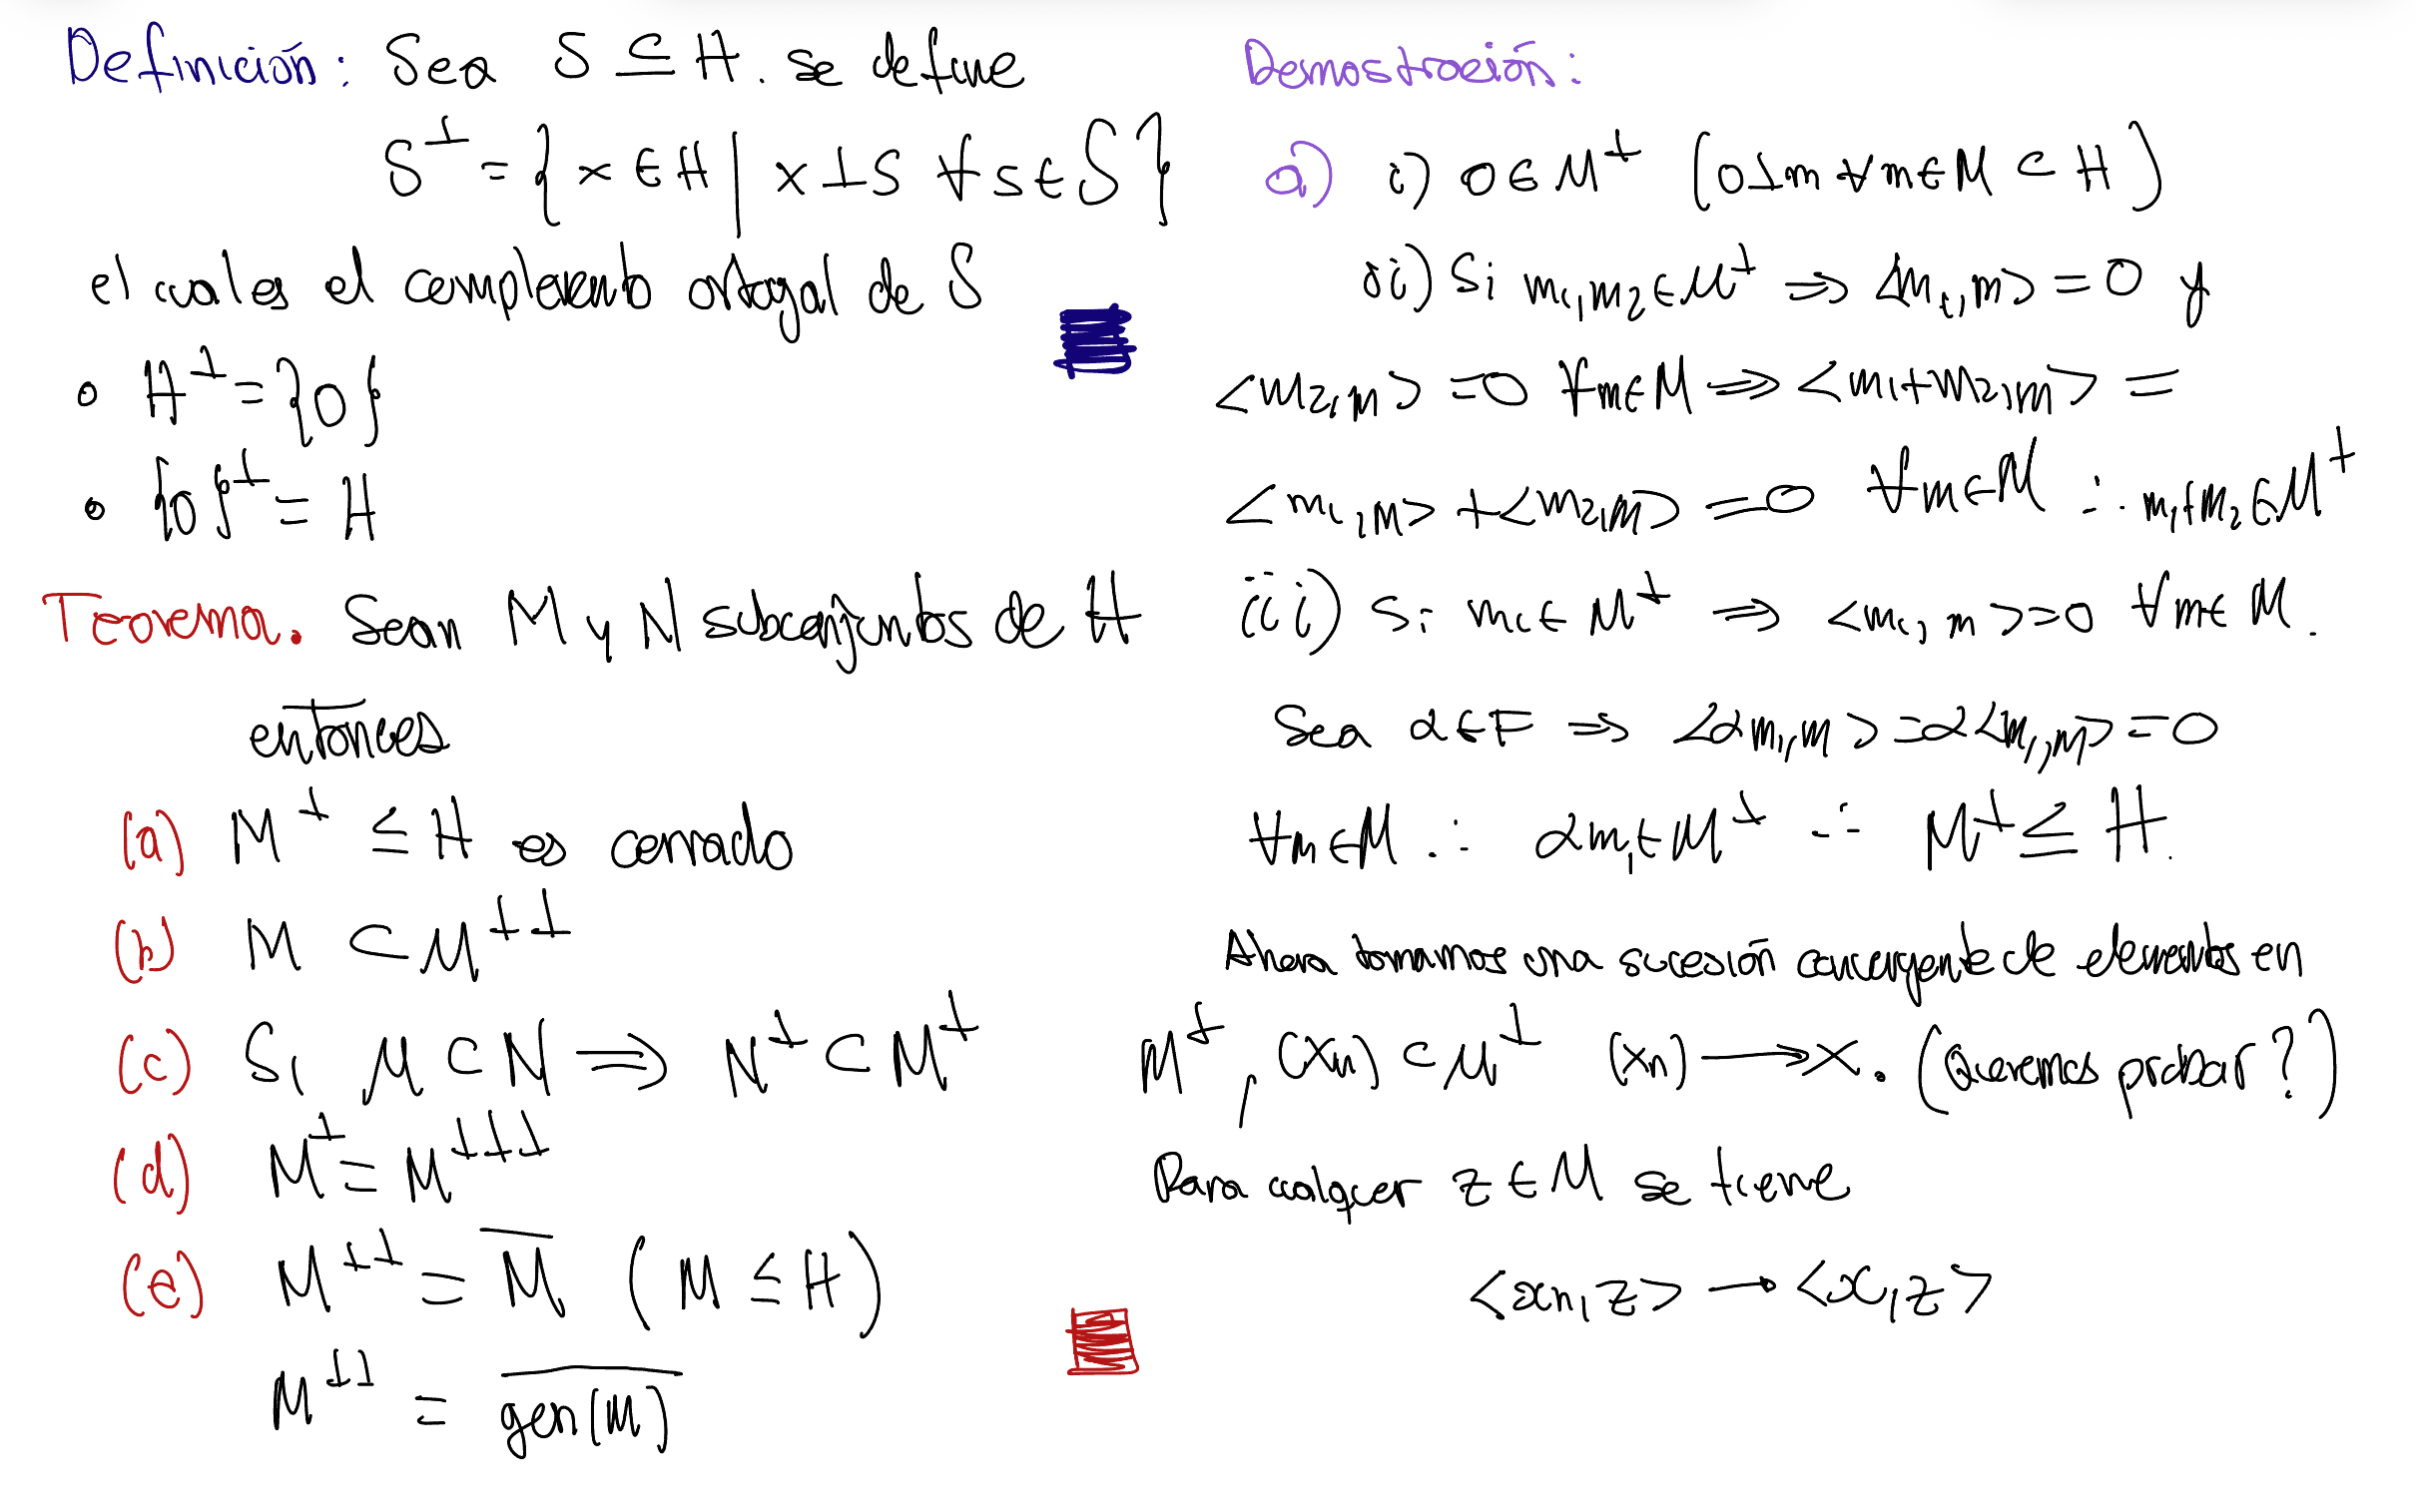 Definición: Sea S ⊆ H. se define
S^⊥ = { x ∈ H | x ⊥ s ∀ s ∈ S }
el cual es el complemento ortogal de S
• H^⊥ = {0}
• {0}^⊥ = H
Teorema. Sean M y N subconjuntos de H
entonces
(a) M^⊥ ≤ H es cerrado
(b) M ⊂ M^⊥⊥
(c) Si M ⊂ N ⟹ N^⊥ ⊂ M^⊥
(d) M^⊥ = M^⊥⊥⊥
(e) M^⊥⊥ = \overline{M} (M ≤ H)
M^⊥⊥ = \overline{gen(M)}
Demostración:
a) i) 0 ∈ M^⊥ (0 ⊥ m ∀ m ∈ M ⊂ H)
ii) Si m₁, m₂ ∈ M^⊥ ⟹ <m₁, m> = 0 y
<m₂, m> = 0 ∀ m ∈ M ⟹ <m₁ + m₂, m> =
<m₁, m> + <m₂, m> = 0 ∀ m ∈ M ∴ m₁ + m₂ ∈ M^⊥
iii) Si m₁ ∈ M^⊥ ⟹ <m₁, m> = 0 ∀ m ∈ M.
Sea α ∈ F ⟹ <αm₁, m> = α<m₁, m> = 0
∀ m ∈ M ∴ αm₁ ∈ M^⊥ ∴ M^⊥ ≤ H.
Ahora tomamos una sucesión convergente de elementos en
M^⊥, (xn) ⊂ M^⊥ (xn) ⟶ x. (Queremos probar?)
Para cualquer z ∈ M se tiene
<xn, z> → <x, z>